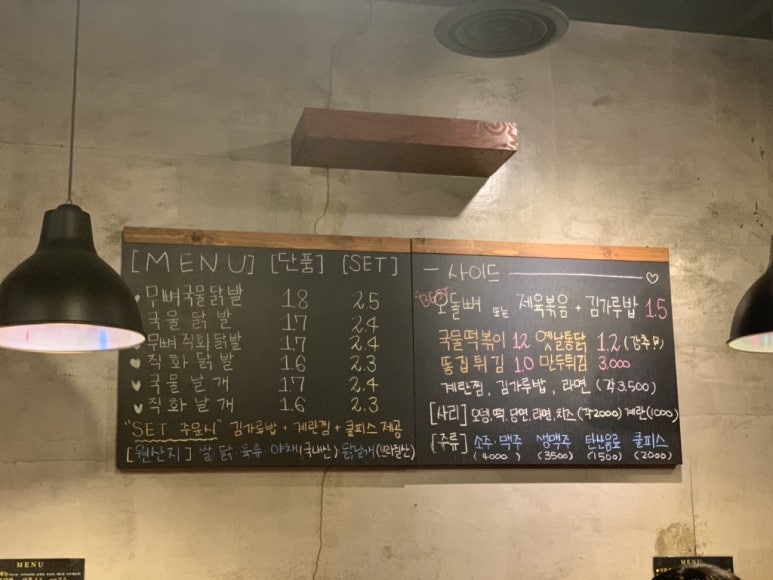 [MENU] [단품] [SET]
무뼈국물닭발 1.8 2.5
국물닭발 1.7 2.4
무뼈직화닭발 1.7 2.4
직화닭발 1.6 2.3
국물날개 1.7 2.4
직화날개 1.6 2.3
"SET 주문시" 김가루밥 + 계란찜 + 쿨피스 제공
[원산지] 쌀 닭 육류 야채(국내산) 닭날개(브라질산)
사이드
"BEST"
오돌뼈 또는 제육볶음 + 김가루밥 1.5
국물떡볶이 1.2 옛날통닭 1.2
똥집튀김 1.0 만두튀김 3.000
계란찜, 김가루밥, 라면 (각3.500)
[사리] 오뎅,떡,당면,라면,치즈 (각2000) 계란(1000)
[주류] 소주·맥주 생맥주 탄산음료 쿨피스
(4000) (3500) (1500) (2000)
MENU
MENU